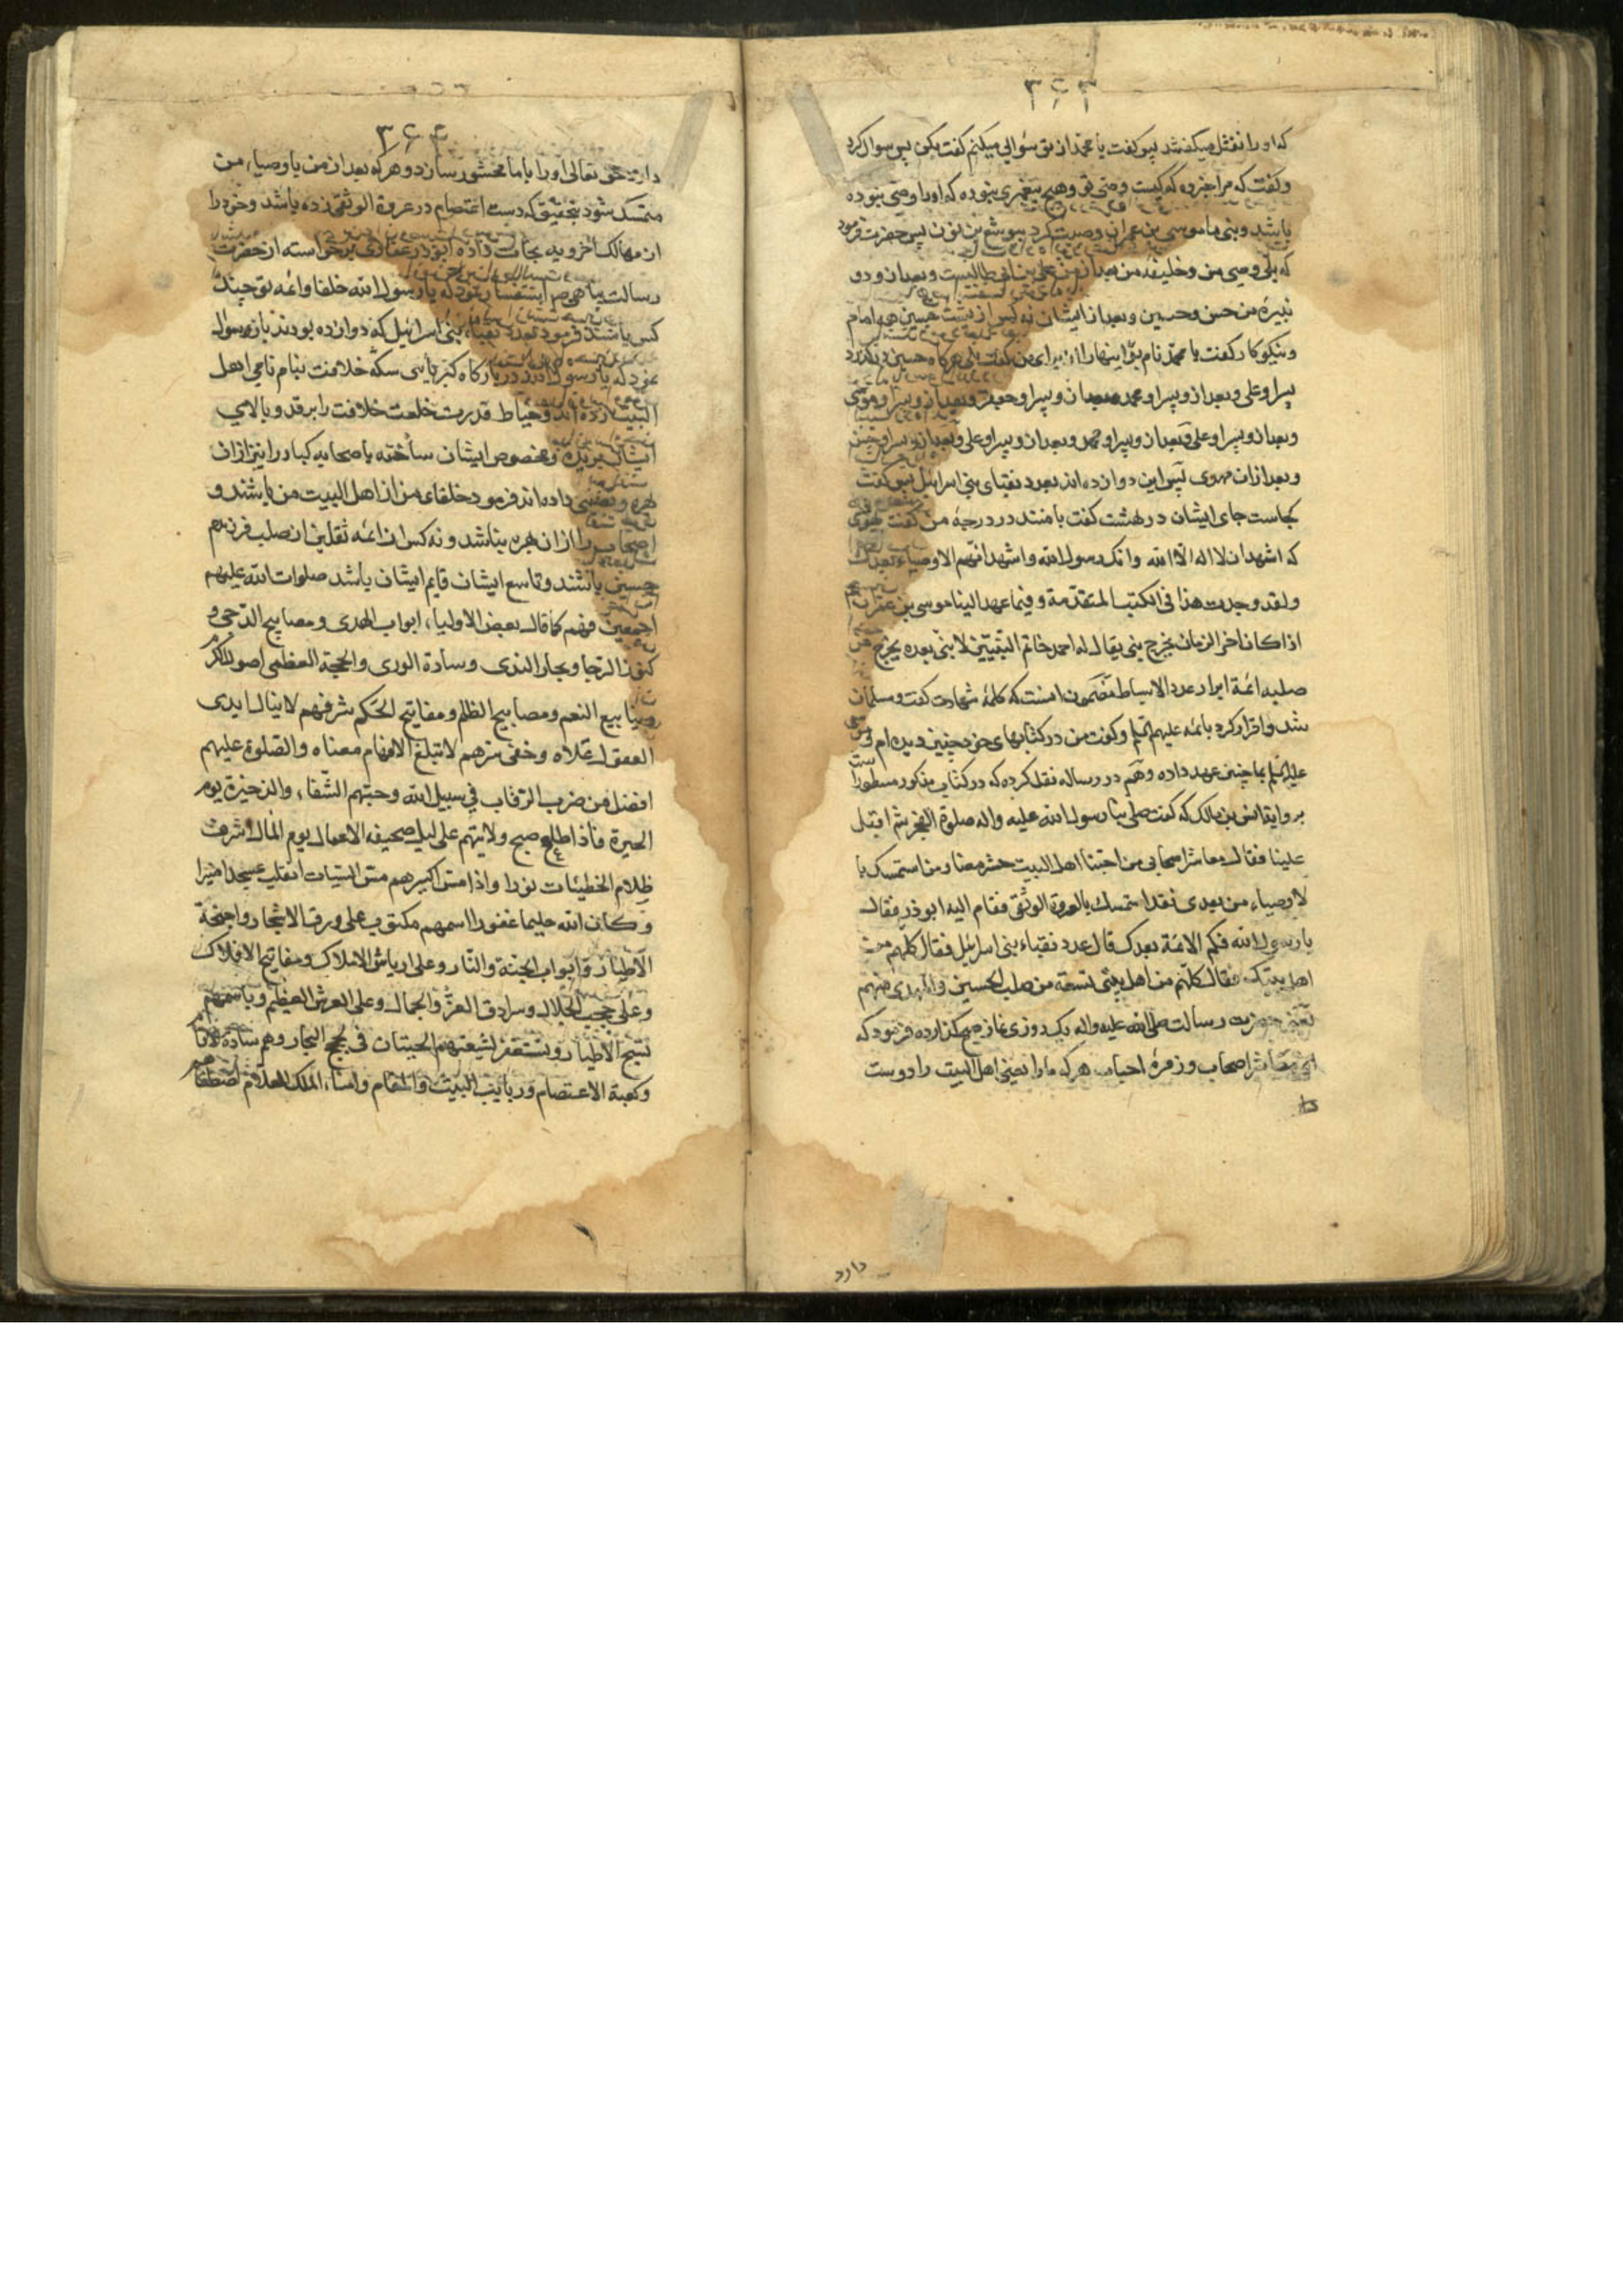 ۳۶۳
که او را نعثل میگفتند پس گفت یا محمد از تو سؤالی میکنم گفت بکن پس سوال کرد
و گفت که مرا خبر ده که کیست وصی تو و هیچ پیغمبری نبوده که او را وصی نبوده
باشد و نبی ما موسی بن عمران وصیت کرد بیوشع بن نون پس حضرت فرمود
که بلی وصی من و خلیفه من بعد از من علی بن ابی طالبست و بعد از و دو
نبیره من حسن و حسین و بعد از ایشان نه کس از پشت حسین همه امام
و نیکو کار گفت یا محمد نام بو اینها را از برای من گفت بلی هرگاه حسین در گذرد
پسر او علی و بعد از و پسر او محمد و بعد از و پسر او جعفر و بعد از و پسر او موسی
و بعد از و پسر او علی و بعد از و پسر او محمد و بعد از و پسر او علی و بعد از و پسر او حسن
و بعد از ان مهدی پس این دوازده اند بعدد نقبای بنی اسرائیل پس گفت
کجاست جای ایشان در بهشت گفت با منند در درجه من گفت
که اشهد ان لا اله الا الله و انک رسول الله و اشهد انهم الاوصیاء بعدک
و لقد وجدت هذا فی الکتب المتقدمة و فیما عهد الینا موسی بن عمران
اذا کان اخر الزمان یخرج نبی یقال له احمد خاتم النبیین لا نبی بعده یخرج من
صلبه ائمة ابرار عدد الاسباط مضمون انست که کلمه شهادت گفت و مسلمان
شد و اقرار کرد بائمه علیهم السلم و گفت من در کتابهای خود چنین دیده ام و موسی
علیه السلم بما چنین عهد داده و هم در رساله نقل کرده که در کتاب مذکور مسطور است
بروایة انس بن مالک که گفت صلی بنا رسول الله علیه و اله صلوة الفجر ثم اقبل
علینا فقال معاشر اصحابی من احبنا اهل البیت حشر معنا و من استمسک با
لاوصیاء من بعدی فقد استمسک بالعروة الوثقی فقام الیه ابو ذر فقال
یا رسول الله فکم الائمة بعدک قال عدد نقباء بنی اسرائیل فقال کلهم من
اهل بیتک فقال کلهم من اهل بیتی تسعة من صلب الحسین و المهدی منهم
یعنی حضرت رسالت صلی الله علیه و اله یک روزی نماز صبح گذارده فرمود که
ای معاشر اصحاب و زمره احباب هر که ما را یعنی اهل البیت را دوست
دارد
۳۶۴
دارد حق تعالی او را با ما محشور رساند و هر که بعد از من باوصیاء من
متمسک شود بتحقیق که دست اعتصام در عروة الوثقی زده باشد و خود را
از مهالک اخرویه نجات داده ابوذر غفاری برخواسته از حضرت
رسالت پناهی ص استفسار نمود که یا رسول الله خلفا و ائمه تو چند
کس باشند فرمود بعدد نقباء بنی اسرائیل که دوازده بودند باز سوال
نمود که یا رسول الله در بارگاه کبریائی سکه خلافت بنام نامی اهل
البیت زده اند و خیاط قدرت خلعت خلافت را بر قد و بالای
ایشان بریده و مخصوص ایشان ساخته یا صحابه کبار را نیز از ان
بهره و نصیبی داده اند فرمود خلفای من از اهل البیت من باشند و
اصحاب را از ان بهره نباشد و نه کس از ائمه ثقلین از صلب فرزندم
حسین باشند و تاسع ایشان قایم ایشان باشد صلوات الله علیهم
اجمعین فهم کما قال بعض الاولیاء ابواب الهدی و مصابیح الدجی و
کنوز الرجا و بحار الندی و سادة الوری و الحجة العظمی اصول الکرم
و ینابیع النعم و مصابیح الظلم و مفاتیح الحکم شرفهم لا ینال ایدی
العقول علاه و خفی سرهم لا تبلغ الافهام معناه و الصلوة علیهم
افضل من ضرب الرقاب فی سبیل الله و حبهم الشفاء و الذخیرة یوم
الحیرة فاذا طلع صبح ولایتهم علی لیل صحیفه الاعمال یوم المآل اشرقت
ظلام الخطیئات نورا و اذا مس اکسیرهم مس السیئات انقلب عسجدا منیرا
و کان الله حلیما غفورا اسمهم مکتوب علی ورق الاشجار و اجنحة
الاطیار و ابواب الجنة و النار و علی اریاش الاملاک و مفاتیح الافلاک
و علی حجب الجلال و سرادق العز و الجمال و علی العرش العظیم و باسمهم
تسبح الاطیار و یستغفر لشیعتهم الحیتان فی لجج البحار و هم سادة الانام
و کعبة الاعتصام و ربایب البیت و المقام و امناء الملک العلام